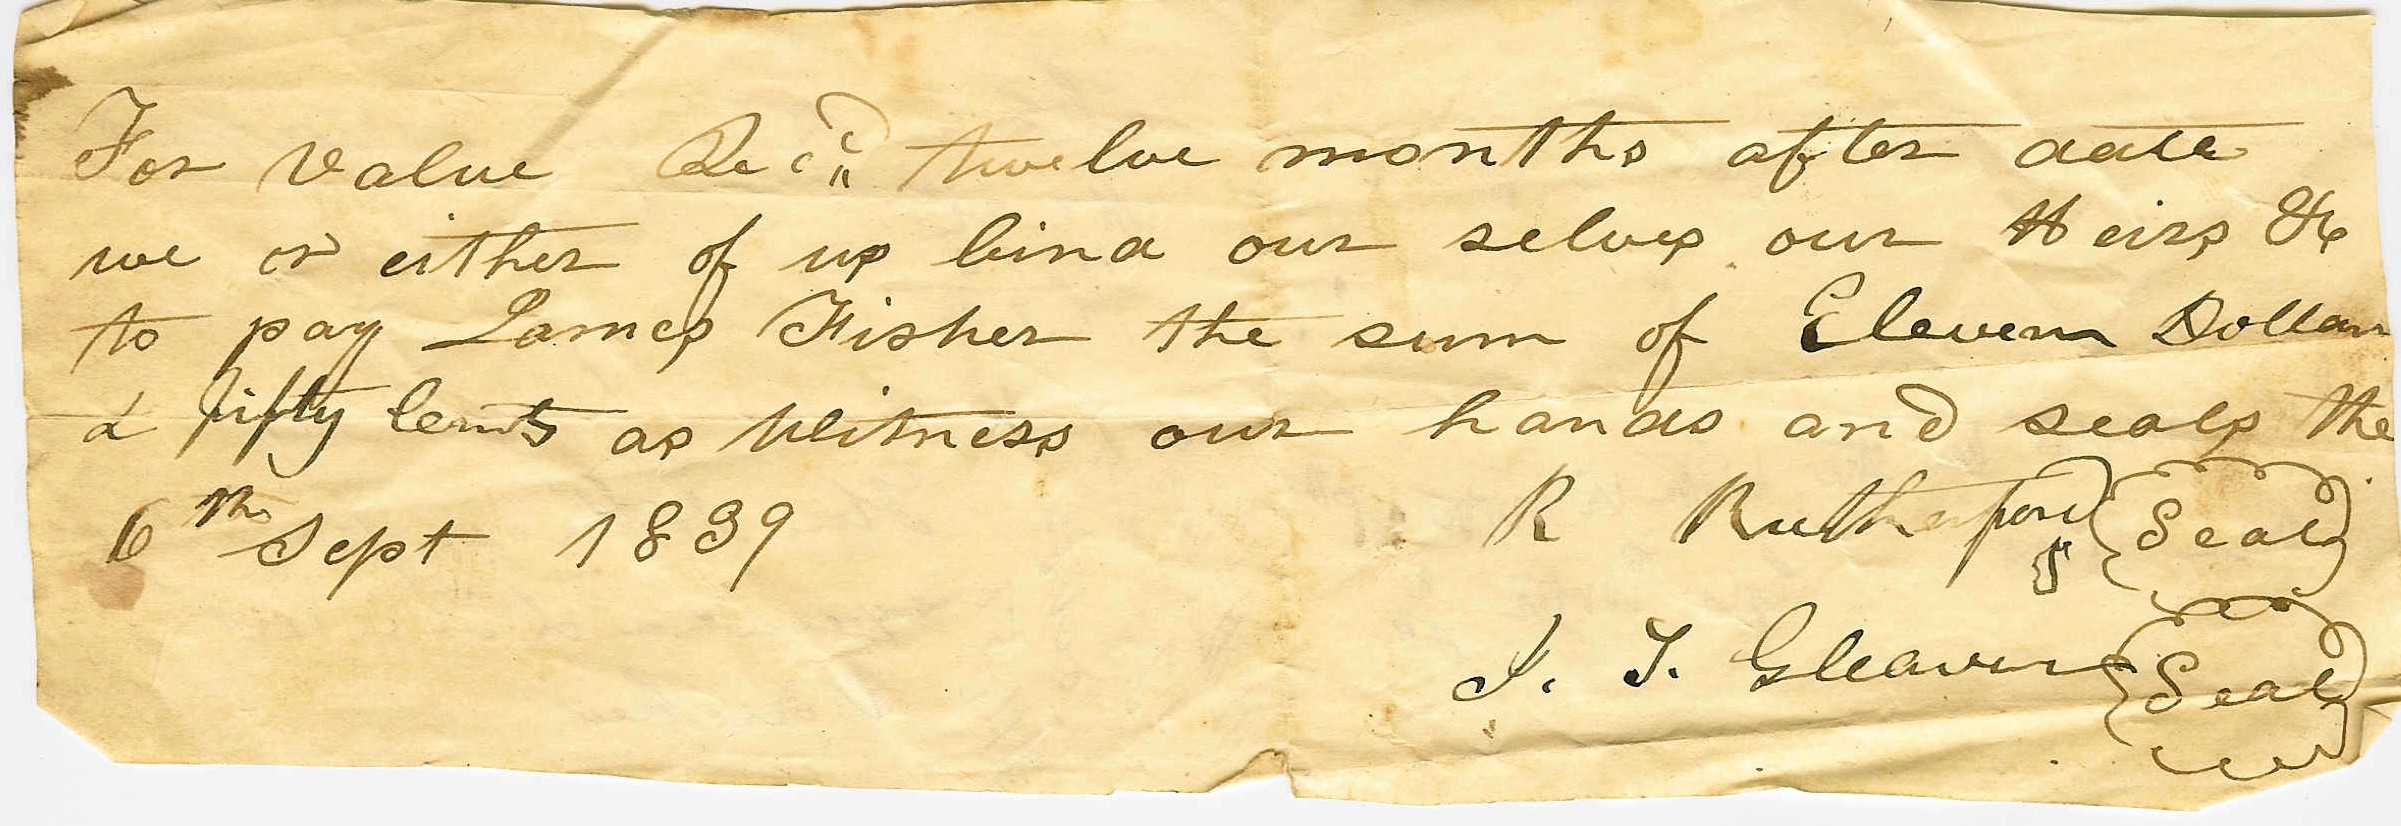 For value Recd twelve months after date
we or either of us bind our selves our Heirs &c
to pay James Fisher the sum of Eleven Dollars
& fifty Cents as Witness our hands and seals the
6th Sept 1839 R Rutherford Seal
J. T. Gleaves Seal